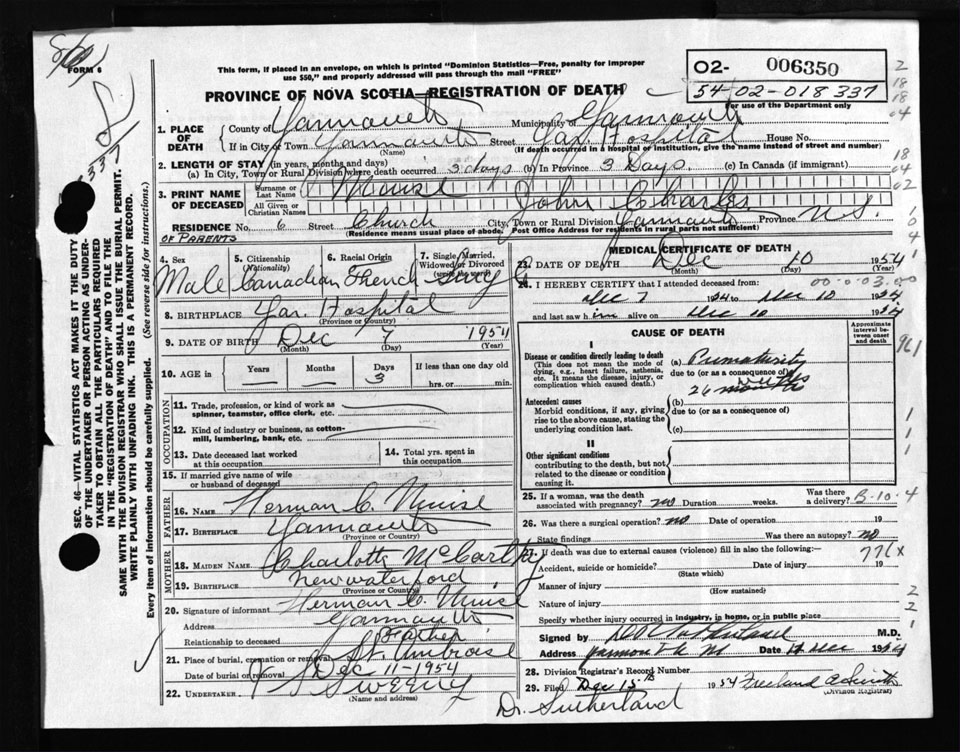 FORM 6
This form, if placed in an envelope, on which is printed "Dominion Statistics—Free, penalty for improper
use $50," and properly addressed will pass through the mail "FREE"
PROVINCE OF NOVA SCOTIA—REGISTRATION OF DEATH
02- 006350
54-02-018 337
For use of the Department only
337
1. PLACE OF DEATH
County of Yarmouth Municipality of Yarmouth
If in City or Town Yarmouth Street Yar. Hospital House No.
(Name) (If death occurred in a hospital or institution, give the name instead of street and number)
2. LENGTH OF STAY (in years, months and days)
(a) In City, Town or Rural Division where death occurred 3 days (b) In Province 3 Days. (c) In Canada (if immigrant)
3. PRINT NAME OF DECEASED
Surname or Last Name Muise
All Given or Christian Names John Charles
RESIDENCE No. 6 Street Church City, Town or Rural Division Yarmouth Province N.S.
OF PARENTS (Residence means usual place of abode. Post Office Address for residents in rural parts not sufficient)
4. Sex Male
5. Citizenship (Nationality) Canadian
6. Racial Origin French
7. Single, Married, Widowed or Divorced (write the word) Single
8. BIRTHPLACE Yar. Hospital
(Province or Country)
9. DATE OF BIRTH Dec 7 1954
(Month) (Day) (Year)
10. AGE in Years Months Days 3 If less than one day old
hrs. or min.
OCCUPATION
11. Trade, profession, or kind of work as
spinner, teamster, office clerk, etc.
12. Kind of industry or business, as cotton-
mill, lumbering, bank, etc.
13. Date deceased last worked
at this occupation
14. Total yrs. spent
in this occupation
15. If married give name of wife
or husband of deceased
FATHER
16. Name Herman C. Muise
17. Birthplace Yarmouth
(Province or Country)
MOTHER
18. Maiden Name Charlotte McCarthy
19. Birthplace New Waterford
(Province or Country)
20. Signature of informant Herman C. Muise
Address Yarmouth
Relationship to deceased Father
21. Place of burial, cremation or removal St. Ambrose
Date of burial or removal Dec 11-1954
22. Undertaker Sweeny
(Name and address)
MEDICAL CERTIFICATE OF DEATH
23. DATE OF DEATH Dec 10 1954
(Month) (Day) (Year)
24. I HEREBY CERTIFY that I attended deceased from:
Dec 7 1954 to Dec 10 1954
and last saw him alive on Dec 10 1954
CAUSE OF DEATH
Approximate interval between onset and death
I
Disease or condition directly leading to death
(This does not mean the mode of
dying, e.g., heart failure, asthenia,
etc. It means the disease, injury, or
complication which caused death.)
(a) Prematurity
due to (or as a consequence of)
26 weeks months
Antecedent causes
Morbid conditions, if any, giving
rise to the above cause, stating the
underlying condition last.
(b)
due to (or as a consequence of)
(c)
II
Other significant conditions
contributing to the death, but not
related to the disease or condition
causing it.
25. If a woman, was the death
associated with pregnancy? no Duration weeks. Was there a delivery?
26. Was there a surgical operation? no Date of operation 19
State findings Was there an autopsy? no
27. If death was due to external causes (violence) fill in also the following:—
Accident, suicide or homicide? Date of injury 19
(State which)
Manner of injury
(How sustained)
Nature of injury
Specify whether injury occurred in industry, in home, or in public place
Signed by M.D.
Address Yarmouth NS Date Dec 1954
28. Division Registrar's Record Number
29. Filed Dec 15th 1954 Freeland
(Division Registrar)
Dr. Sutherland
961
B-10-4
776X
SEC. 46—VITAL STATISTICS ACT MAKES IT THE DUTY
OF THE UNDERTAKER OR PERSON ACTING AS UNDER-
TAKER TO OBTAIN ALL THE PARTICULARS REQUIRED
IN THE "REGISTRATION OF DEATH" AND TO FILE THE
SAME WITH THE DIVISION REGISTRAR WHO SHALL ISSUE THE BURIAL PERMIT.
WRITE PLAINLY WITH UNFADING INK. THIS IS A PERMANENT RECORD.
Every item of information should be carefully supplied. (See reverse side for instructions.)